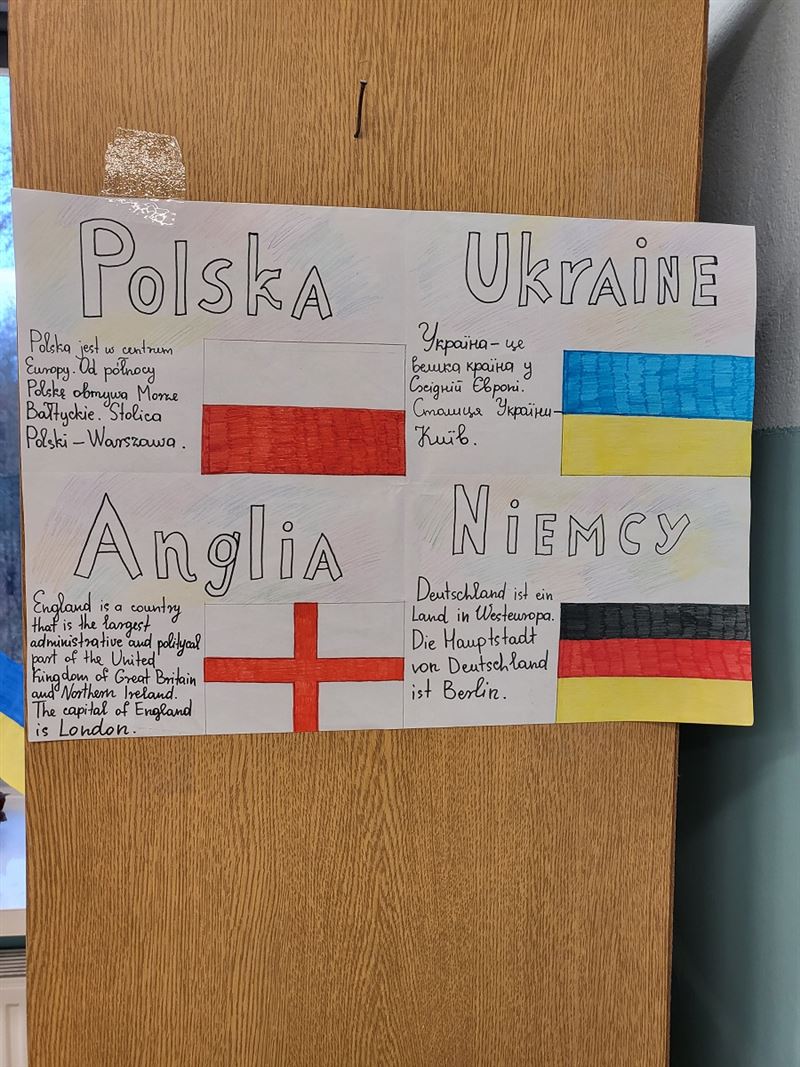 Polska
Polska jest w centrum
Europy. Od północy
Polskę obmywa Morze
Bałtyckie. Stolica
Polski – Warszawa.
Ukraine
Україна – це
велика країна у
Східній Європі.
Столиця України –
Київ.
Anglia
England is a country
that is the largest
administrative and politycal
part of the United
Kingdom of Great Britain
and Northern Ireland.
The capital of England
is London.
Niemcy
Deutschland ist ein
Land in Westeuropa.
Die Hauptstadt
von Deutschland
ist Berlin.